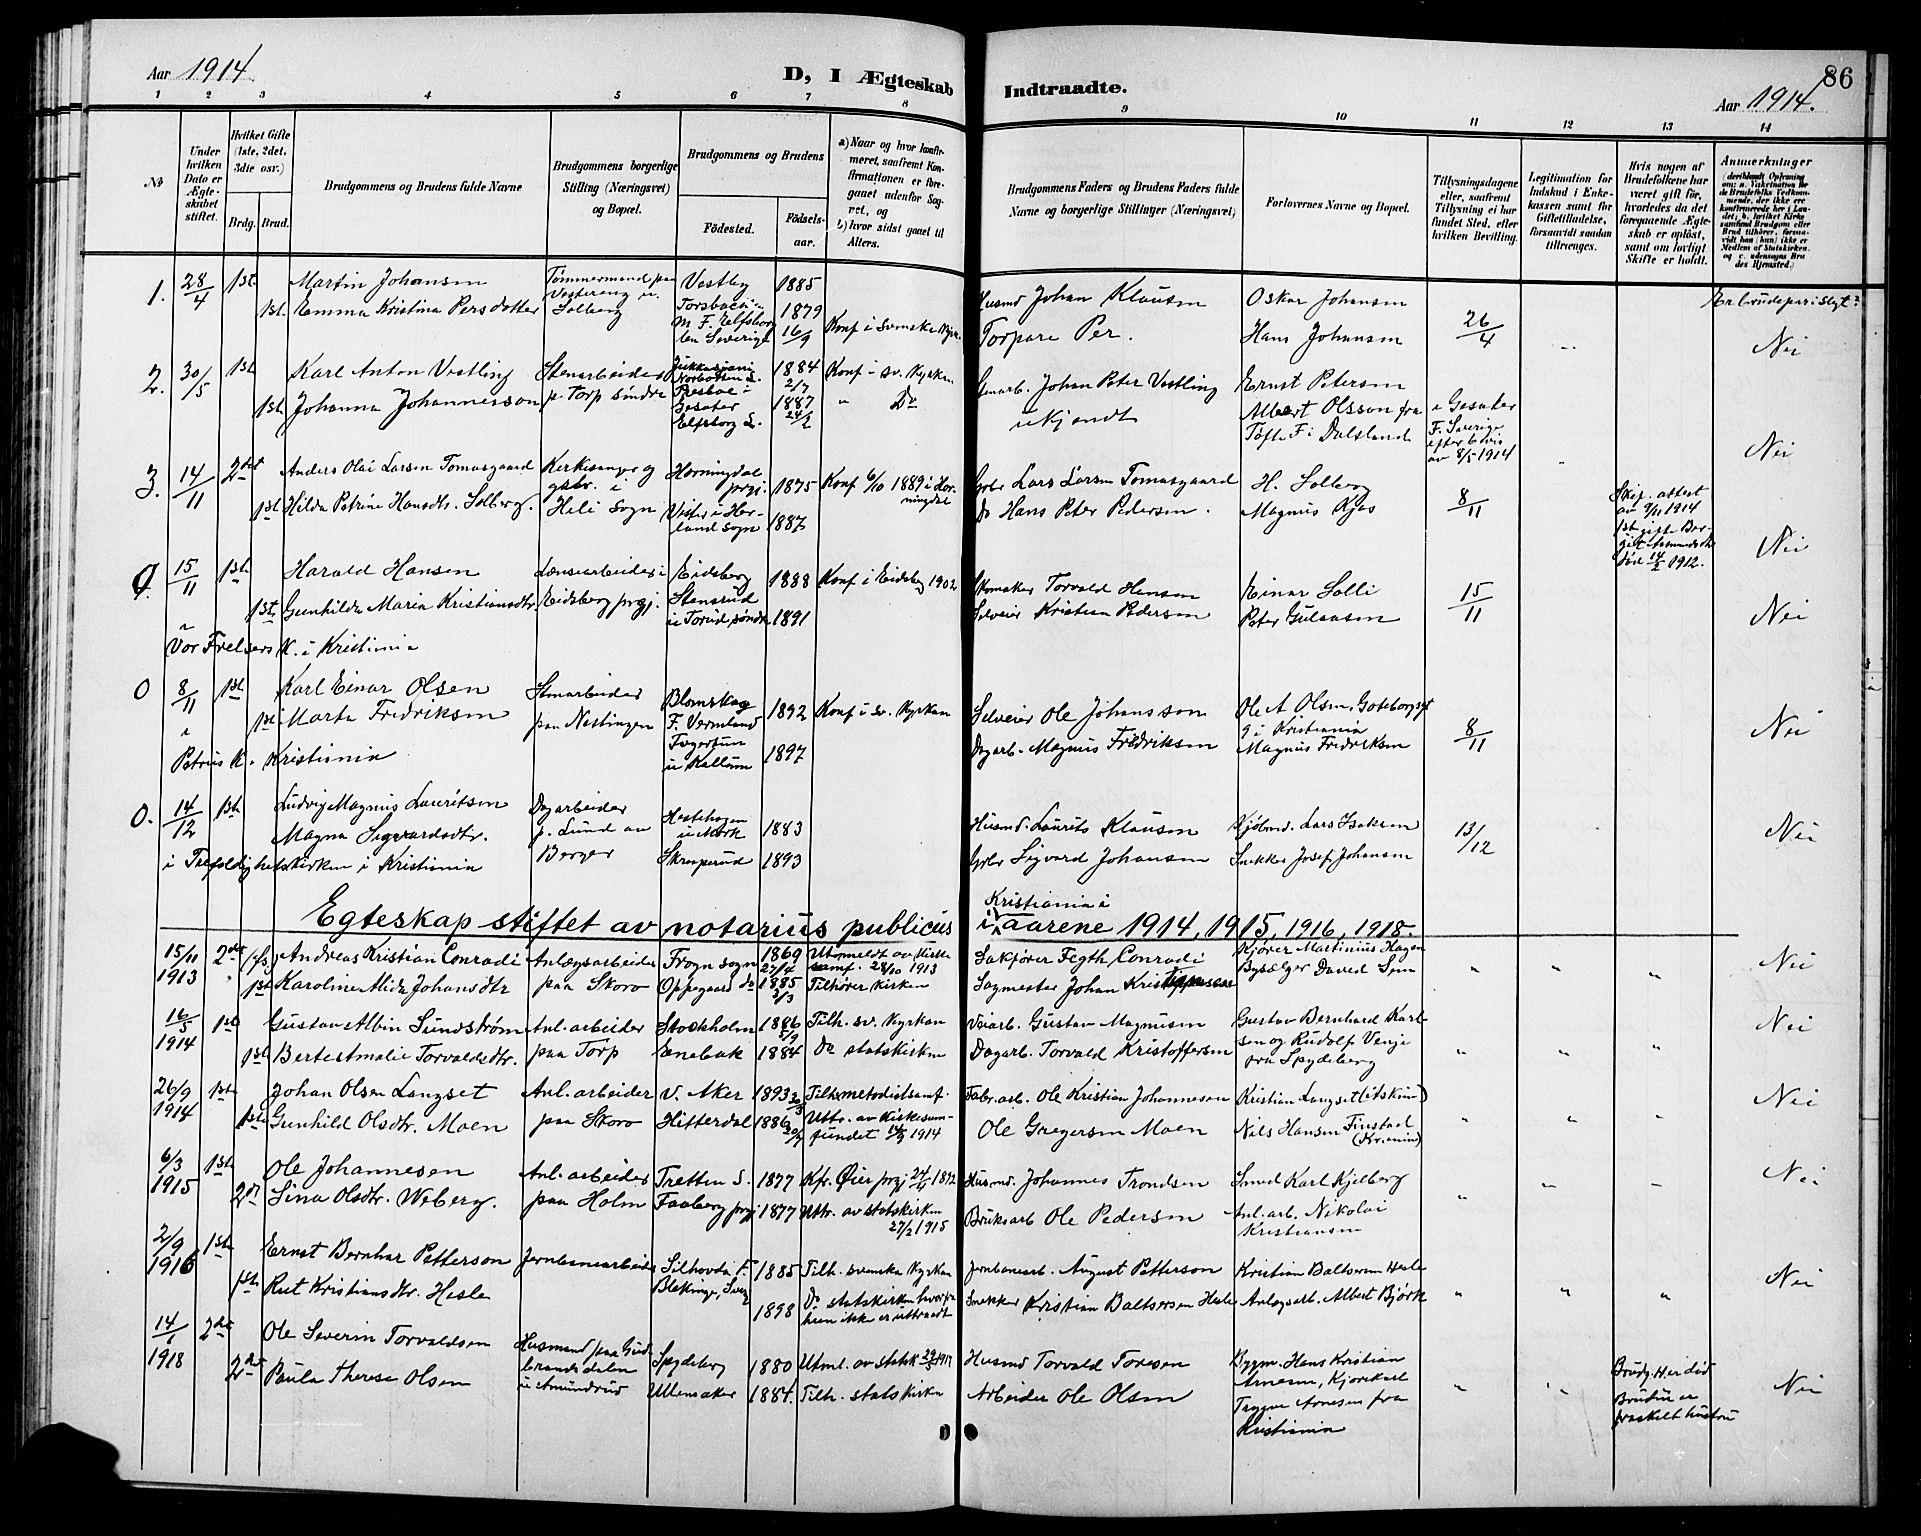 Aar 1914
D, I Ægteskab
Indtraadte.
86
Aar 1914.
1 2 3 4 5 6 7 8 9 10 11 12 13 14
No
Under hvilken Dato er Ægteskabet stiftet.
Hvilket Gifte (1ste, 2det, 3die osv.)
Brdg. Brud.
Brudgommens og Brudens fulde Navne
Brudgommens borgerlige Stilling (Næringsvei) og Bopæl.
Brudgommens og Brudens
Fødested.
Fødselsaar.
a) Naar og hvor konfirmeret, saafremt Konfirmationen er foregaaet udenfor Sognet, og
b) hvor sidst gaaet til Alters.
Brudgommens Faders og Brudens Faders fulde Navne og borgerlige Stillinger (Næringsvei)
Forlovernes Navne og Bopæl.
Tillysningsdagene eller, saafremt Tillysning ei har fundet Sted, efter hvilken Bevilling.
Legitimation for Indskud i Enkekassen samt for Giftetilladelse, forsaavidt saadan tiltrænges.
Hvis nogen af Brudefolkene har været gift før, hvorledes da det foregaaende Ægteskab er opløst, samt om lovligt Skifte er holdt.
Anmerkninger
1. 28/4 1st. Martin Johansen Tømmermand paa Vestereng u. Solberg Vestby 1885 Husmd Johan Klausen Oskar Johansen
1st. Emma Kristina Persdotter 1879 16/9 Konf i Svenske Kyrk. Torpare Per. Hans Johansen 26/4 Nei
2. 30/5 1st Karl Anton Vestling Stenarbeider 1884 2/7 Konf i sv. Kyrkan Stenarb. Johan Peter Vestling Ernst Petersen
1st. Johanna Johannesson p. Torp søndre 1887 24/2 " Do ukjendt Albert Olsson fra Töfte F i Dalsland
i Gesäter F. Sverige efter bevis av 8/5 1914 Nei
3. 14/11 2det Anders Olai Larsen Tomasgaard Kirkesanger og gbr. i Heli sogn Horningdal prgj. 1875 Konf 6/10 1889 i Horningdal Gbr Lars Larsen Tomasgaard H. Solberg
1st Hilda Petrine Hansdtr. Solberg. 1887 Do Hans Peter Pedersen. Magnus Kjos 8/11
Skif. attest av 9/11 1914
Nei
15/11 1st. Harald Hansen Lænsearbeider i Eidsberg prgj. Eidsberg 1888 Konf i Eidsbg 1902 Skomaker Torvald Hansen Einar Solli 15/11
1st. Gunhilda Maria Kristiansdtr. Stensrud i Torud, søndre 1891 Selveier Kristian Pedersen Peter Gulausen Nei
i Vor Frelsers K. i Kristiania
O 8/11 1st. Karl Einar Olsen Stenarbeider paa Nestingen Blomskog F. Vermland 1892 Konf i sv. Kyrkan Selveier Ole Johansson Ole A Olsen, Goteborggt 9 i Kristiania
1st Marta Fredriksen 1897 Dagarb. Magnus Fredriksen Magnus Fredriksen 8/11 Nei
i Petrus K. Kristiania
O. 14/12 1st. Ludvig Magnus Lauritsen Dagarbeider p. Lund av Berger Hestehagen u Mørk 1883 Husmd. Laurits Klausen Kjøbmd. Lars Isaksen 13/12
Magna Sigvardsdtr. Skrapperud 1893 Gbr Sigvard Johansen Snekker Josef Johansen Nei
i Trefoldighetskirken i Kristiania
Egteskap stiftet av notarius publicus i Kristiania i aarene 1914, 1915, 1916, 1918.
15/11 1913 2det Andreas Kristian Conradi Anlægsarbeider Frogn sogn 1869 27/4 Utmeldt av Kirkesamf. 28/10 1913 Sakfører Fegth Conradi Kjører Martinius Hagen
1st Karoline Alida Johansdtr paa Skoro Oppegaard do 1885 2/3 Tilhører kirken Sagmester Johan Kristiansen Nei
16/5 1914 1st. Gustav Albin Sundstrøm Anl. arbeider Stockholm 1886 5/9 Tilh. sv. Kyrkan Veiarb. Gustav Magnusen Gustav Bernhard Karlsen og Rudolf Venje fra Spydeberg
1st. Torvaldsdtr. paa Torp Enebak 1884 Do statskirken Dagarb. Torvald Kristoffersen Nei
26/9 1914 1st. Johan Olsen Langset Anl. arbeider V. Aker 1893 Tilh metodistsamf. Fabr. arb. Ole Kristian Johannesen Kristian Langset
1st. Gunhild Olsdtr. Moen paa Skoro Hitterdal 1886 Uttr. av Kirkesamfundet 1914 Ole Gregersen Moen Nils Hansen Finstad Nei
6/3 1915 1st. Ole Johannesen Anl. arbeider Tretten S. 1877 Kfr. Øier prgj Husmd. Johannes Trondsen Smed Karl Kjelberg
2en Lina Olsdtr. Weberg. paa Holm Faaberg prgj 1877 Uttr. av statskirken 27/2 1915 Bruksarb Ole Pedersen Anl. arb. Nikolai Kristiansen Nei
2/9 1916 1st. Ernst Bernhar Petterson Jernbanearbeider Silhovda F. Blekinge, Sverig 1885 Tilh. svenska Kyrkan Jernbanearb. August Petterson Kristian Baltsersen Hesle
1st. Rut Kristiansdtr. Hesle 1898 Do statskirken hvorfra hun ikke er uttraadt Snekker Kristian Baltsersen Hesle Anlægsarb. Albert Bjørk Nei
14/1 1918 2det Ole Severin Torvaldsen Husmand paa Gudbrandsdalen u Amundrud Spydeberg 1880 Utml. av statsk Husmd Torvald Toresen Bygm. Hans Kristian Arnesen, Kjørekarl Trygve Arnesen fra Kristiania
2det Paula Therese Olsen Ullensaker 1884. Tilh. statskirken Arbeider Ole Olsen
Brudg. H. er død Bruden er fraskilt hustru Nei